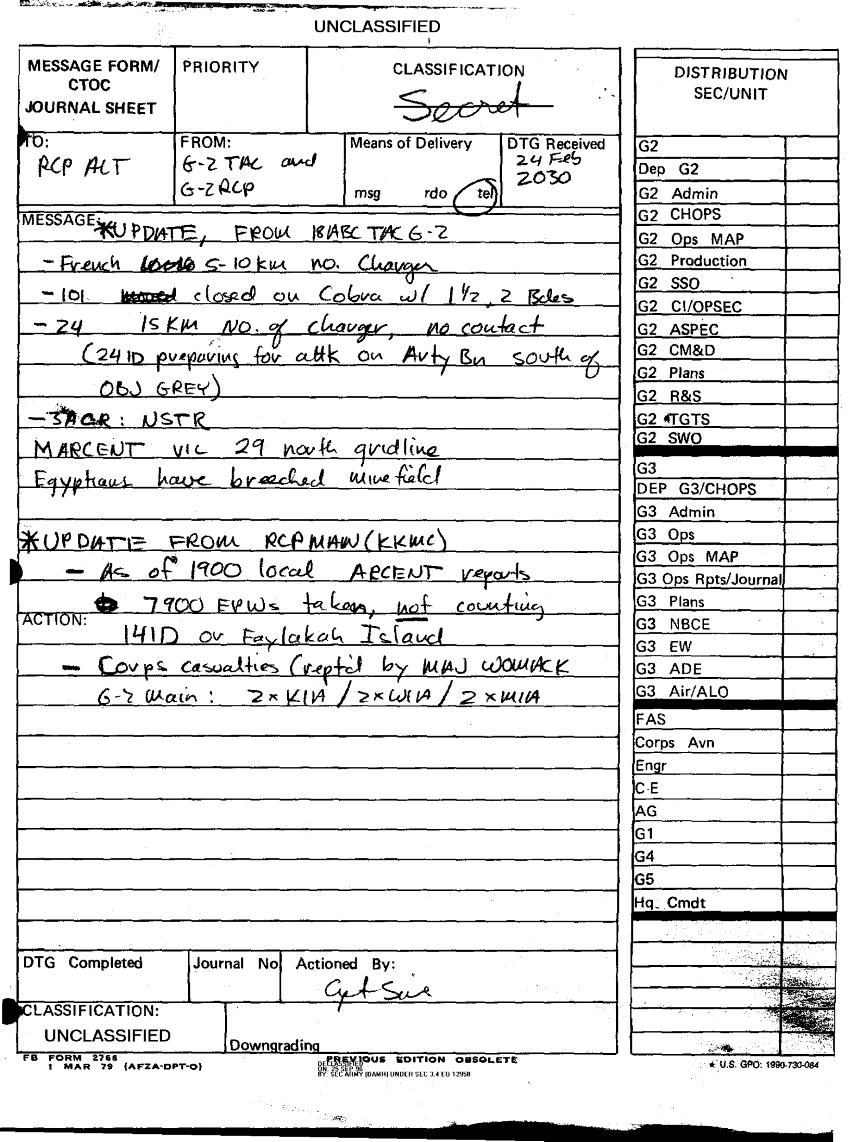 UNCLASSIFIED
MESSAGE FORM/
CTOC
JOURNAL SHEET
PRIORITY
CLASSIFICATION
Secret
TO:
RCP ALT
FROM:
G-2 TAC and
G-2 RCP
Means of Delivery
msg rdo tel
DTG Received
24 Feb
2030
MESSAGE:
*UPDATE, FROM 18ABC TAC G-2
- French 5-10 km no. Charger
- 101 closed on Cobra w/ 1 1/2, 2 Bdes
- 24 15 KM NO. of charger, no contact
(24 ID preparing for attk on Arty Bn south of
OBJ GREY)
- 3ACR: NSTR
MARCENT vic 29 north gridline
Egyptians have breeched minefield
*UPDATE FROM RCP MAIN (KKMC)
- As of 1900 local ARCENT reports
7900 EPWs taken, not counting
ACTION:
14ID or Faylakah Island
- Corps casualties (rept'd by MAJ WOMACK
G-2 Main: 2xKIA / 2xWIA / 2xMIA
DTG Completed
Journal No
Actioned By:
Cpt
CLASSIFICATION:
UNCLASSIFIED
Downgrading
FB FORM 2766
1 MAR 79 (AFZA-DPT-O)
PREVIOUS EDITION OBSOLETE
DECLASSIFIED
ON: 25 SEP 96
BY: SEC ARMY (DAMH) UNDER SEC 3.4 EO 12958
DISTRIBUTION
SEC/UNIT
G2
Dep G2
G2 Admin
G2 CHOPS
G2 Ops MAP
G2 Production
G2 SSO
G2 CI/OPSEC
G2 ASPEC
G2 CM&D
G2 Plans
G2 R&S
G2 TGTS
G2 SWO
G3
DEP G3/CHOPS
G3 Admin
G3 Ops
G3 Ops MAP
G3 Ops Rpts/Journal
G3 Plans
G3 NBCE
G3 EW
G3 ADE
G3 Air/ALO
FAS
Corps Avn
Engr
C-E
AG
G1
G4
G5
Hq. Cmdt
★ U.S. GPO: 1990-730-084